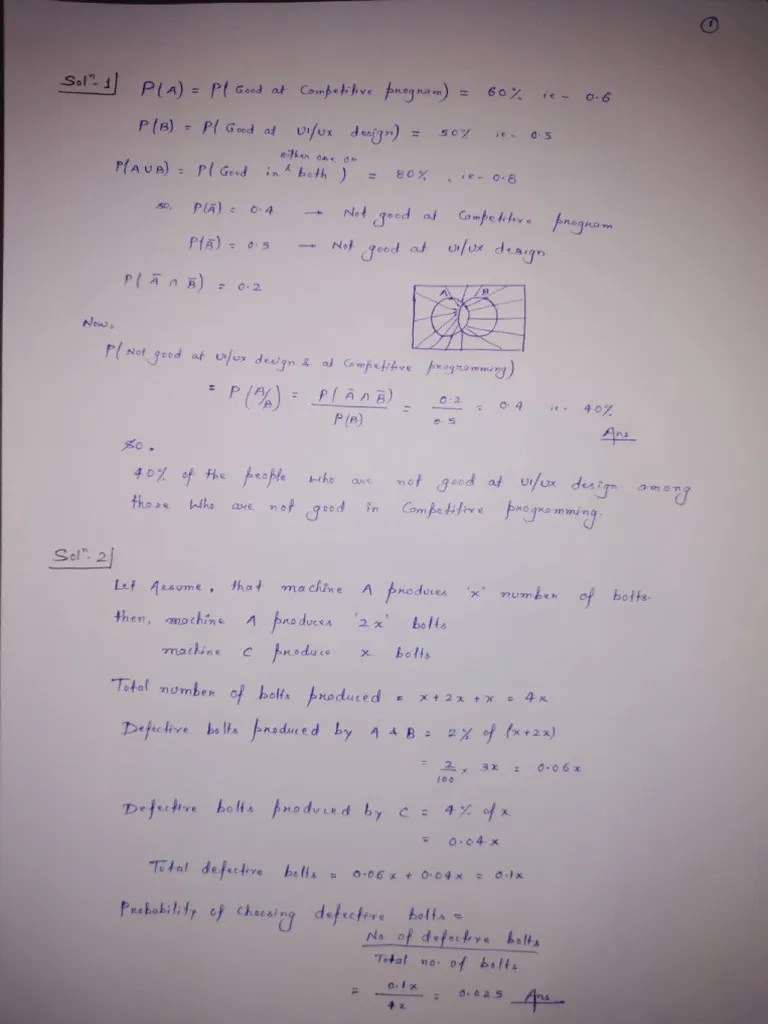 1
Solⁿ-1 P(A) = P( Good at Competitive program) = 60% ie - 0.6
P(B) = P( Good at UI/UX design) = 50% ie - 0.5
either one or
P(A∪B) = P( Good in & both ) = 80% , ie - 0.8
so, P(Ā) = 0.4 → Not good at Competitive program
P(B̄) = 0.5 → Not good at UI/UX design
P( Ā ∩ B̄) = 0.2
A B
Now,
P( Not good at UI/UX design & at Competitive programming)
= P(A/B) = P( Ā ∩ B̄) / P(B) = 0.2 / 0.5 = 0.4 ie. 40%
Ans
So,
40% of the people who are not good at UI/UX design among
those who are not good in Competitive programming.
Solⁿ-2
Let Assume, that machine A produces 'x' number of bolts.
then, machine A produces '2x' bolts
machine C produce x bolts
Total number of bolts produced = x + 2x + x = 4x
Defective bolts produced by A & B = 2% of (x+2x)
= 2/100 × 3x = 0.06x
Defective bolts produced by C = 4% of x
= 0.04x
Total defective bolts = 0.06x + 0.04x = 0.1x
Probability of choosing defective bolts =
No of defective bolts
Total no. of bolts
= 0.1x / 4x = 0.025 Ans